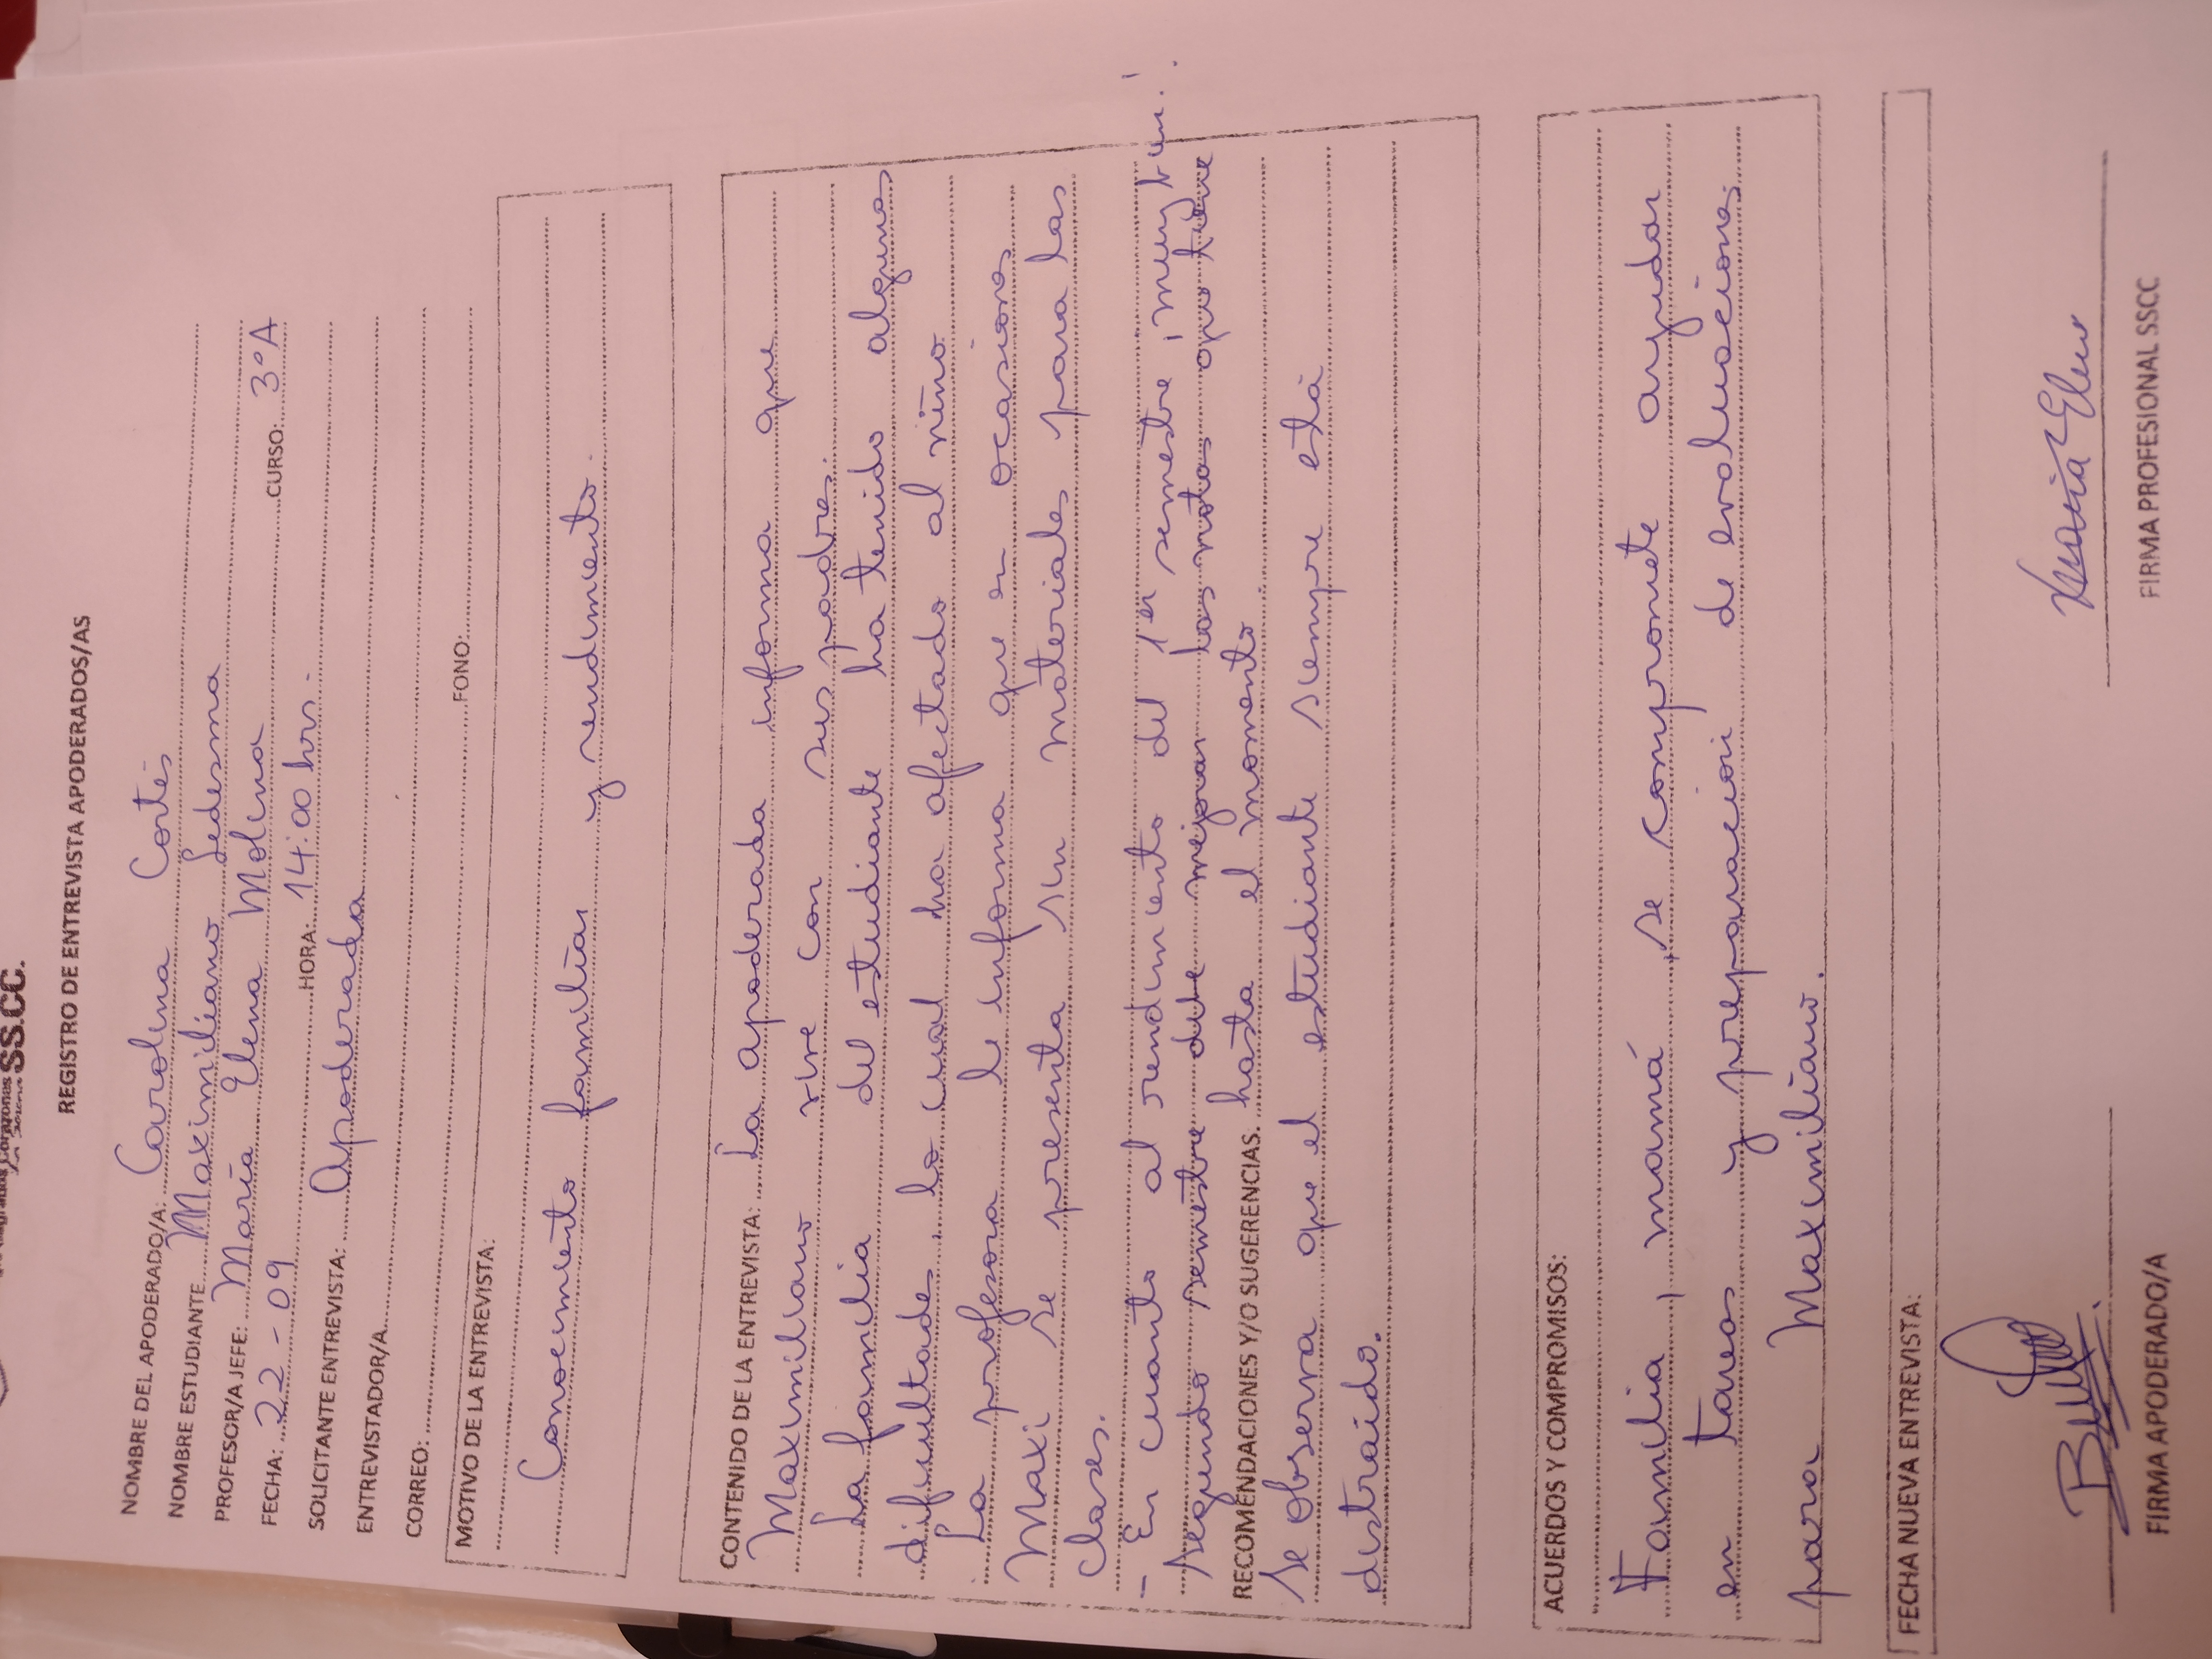 Sagrados Corazones SS.CC.
REGISTRO DE ENTREVISTA APODERADOS/AS
NOMBRE DEL APODERADO/A: Carolina Cortés
NOMBRE ESTUDIANTE Maximiliano Ledesma
PROFESOR/A JEFE: María Elena Molina
FECHA: 22-09 HORA: 14:00 hrs. CURSO: 3°A
SOLICITANTE ENTREVISTA: Apoderada
ENTREVISTADOR/A
CORREO: FONO:
MOTIVO DE LA ENTREVISTA:
Conocimiento familiar y rendimiento.
CONTENIDO DE LA ENTREVISTA: La apoderada informa que
Maximiliano vive con sus padres.
La familia del estudiante ha tenido algunas
dificultades, lo cual ha afectado al niño.
La profesora le informa que en ocasiones
Maxi se presenta sin materiales para las
clases.
- En cuanto al rendimiento del 1er semestre, muy bien!.
Segundo semestre debe mejorar las notas que tiene
RECOMENDACIONES Y/O SUGERENCIAS. hasta el momento.
Se observa que el estudiante siempre está
distraído.
ACUERDOS Y COMPROMISOS:
Familia, mamá, se compromete ayudar
en tareas y preparación de evaluaciones
para Maximiliano.
FECHA NUEVA ENTREVISTA:
María Elena
FIRMA APODERADO/A FIRMA PROFESIONAL SSCC